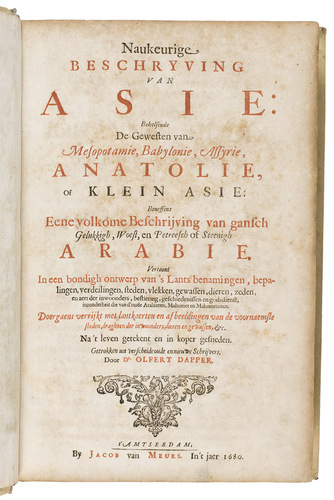 Naukeurige
BESCHRYVING
VAN
ASIE:
Behelsende
De Gewesten van
Mesopotamie, Babylonie, Assyrie,
ANATOLIE,
OF KLEIN ASIE:
Beneffens
Eene volkome Beschrijving van gansch
Gelukkigh, Woest, en Petreesch of Steenigh
ARABIE.
Vertoont
In een bondigh ontwerp van 's Lants benamingen, bepa-
lingen, verdeilingen, steden, vlekken, gewassen, dieren, zeden,
en aert der inwoonders, bestiering, geschiedenissen en godsdienst,
inzonderheit der van d'oude Arabieren, Mahomet en Mahometanen.
Doorgaens verrijkt met lantkaerten en afbeeldingen van de voornaemste
steden, draghten der inwoonders, dieren en gewassen, &c.
Na 't leven getekent en in koper gesneden.
Getrokken uit verscheide oude en nieuwe Schrijvers,
Door Dr. OLFERT DAPPER.
t'AMSTERDAM,
By JACOB van MEURS. In 't jaer 1680.